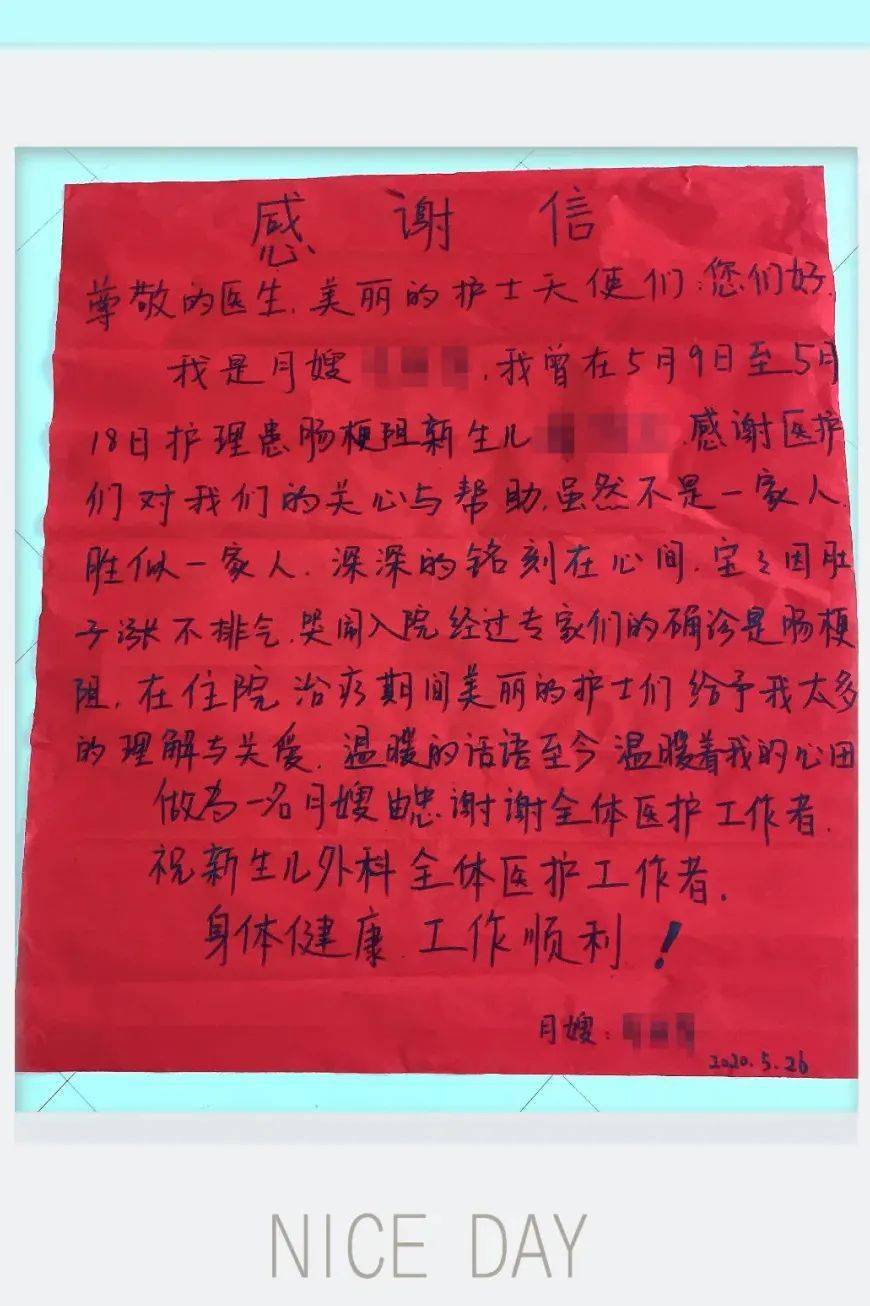 感谢信
尊敬的医生,美丽的护士天使们:您们好,
我是月嫂 ,我曾在5月9日至5月
18日护理患肠梗阻新生儿 感谢医护
们对我们的关心与帮助,虽然不是一家人,
胜似一家人,深深的铭刻在心间,宝々因肚
子涨不排气,哭闹入院经过专家们的确诊是肠梗
阻,在住院治疗期间美丽的护士们给予我太多
的理解与关爱,温暖的话语至今温暖着我的心田
做为一名月嫂由忠谢谢全体医护工作者,
祝新生儿外科全体医护工作者,
身体健康 工作顺利!
月嫂:
2020.5.26
NICE DAY